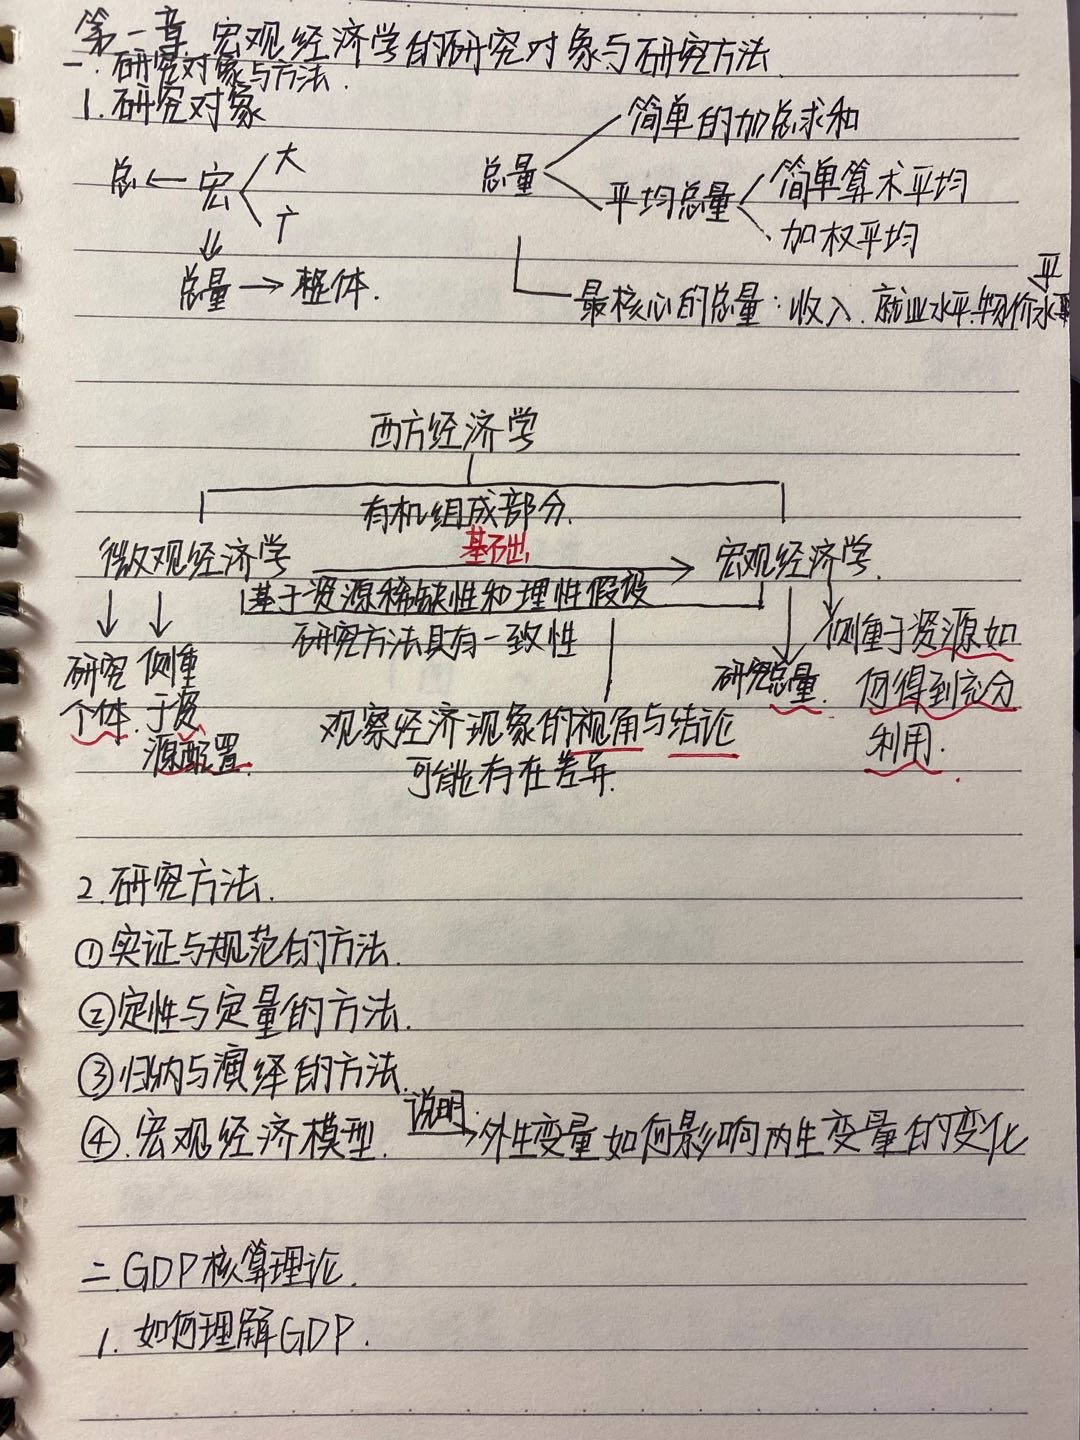 第一章 宏观经济学的研究对象与研究方法
一. 研究对象与方法.
1. 研究对象
简单的加总求和
总 ← 宏
大
广
总量
平均总量
简单算术平均
加权平均
总量 → 整体.
最核心的总量：收入. 就业水平. 物价水平
平
西方经济学
有机组成部分.
微观经济学
基础
宏观经济学.
基于资源稀缺性和理性假设
研究方法具有一致性
研究
个体.
侧重
于资
源配置.
观察经济现象的视角与结论
可能存在差异.
研究总量.
侧重于资源如
何得到充分
利用.
2. 研究方法.
①实证与规范的方法.
②定性与定量的方法.
③归纳与演绎的方法.
④. 宏观经济模型. 说明: → 外生变量如何影响内生变量的变化
二. GDP核算理论.
1. 如何理解GDP.